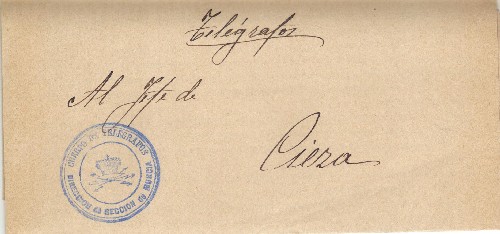 Telégrafos
Al Jefe de
Cieza
CUERPO DE TELEGRAFOS
DIRECCION DE SECCION DE MURCIA